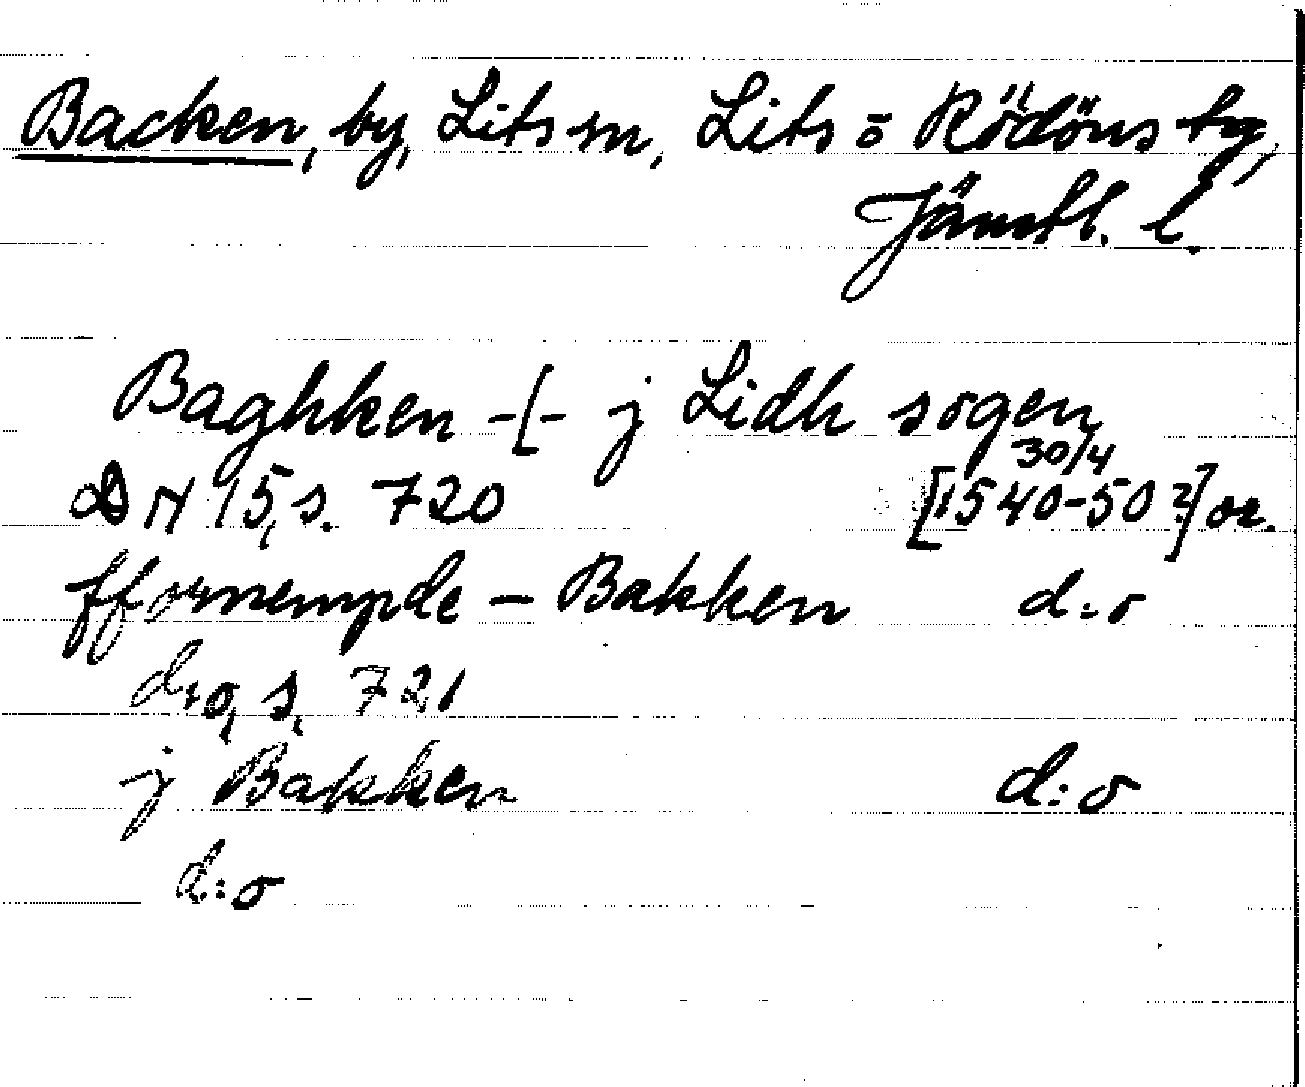 Backen, by, Lits sn, Lits o Rödöns tg,
Jämtl. l.
Baghken -[- j Lidh sogen
30/4
DN 15, s. 720 [1540-50?] or.
fforнempde - Bakken d:o
d:o, s. 721
j Bakken d:o
d:o